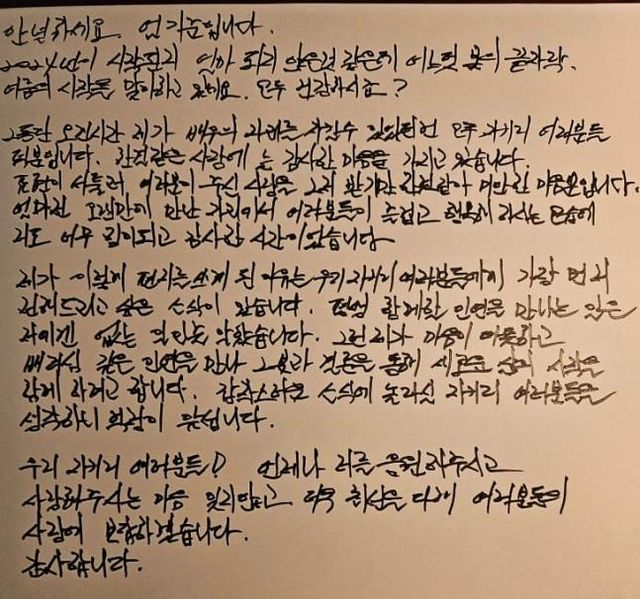 안녕하세요 엄기준입니다.
2024년이 시작된지 얼마 되지 않은것 같은데 어느덧 봄의 끝자락.
여름의 시작을 맞이하고 있네요. 모두 건강하시죠?
그동안 오랜시간 제가 배우의 자리를 지킬수 있었던건 모두 자기리 여러분들
덕분입니다. 한결같은 사랑에 늘 감사한 마음을 가지고 있습니다.
표현이 서툴러, 여러분이 주신 사랑을 그저 받기만 한것같아 미안한 마음뿐입니다.
얼마전 오랜만에 만난 자리에서 여러분들이 즐겁고 행복해 하시는 모습에
저도 너무 힘이되고 감사한 시간이었습니다
제가 이렇게 편지를 쓰게 된 이유는 우리 자기리 여러분들에게 가장 먼저
전해드리고 싶은 소식이 있습니다. 평생 함께할 인연을 만나는 일은
저에겐 없는 일인줄 알았습니다. 그런 제가 마음이 따뜻하고
배려심 깊은 인연을 만나 그분과 결혼을 통해 새로운 삶의 시작을
함께 하려고 합니다. 갑작스러운 소식에 놀라실 자기리 여러분들을
생각하니 화감이 듭니다.
우리 자기리 여러분들! 언제나 저를 응원해주시고
사랑해주시는 마음 잊지않고 더욱 최선을 다해 여러분들의
사랑에 보답하겠습니다.
감사합니다.